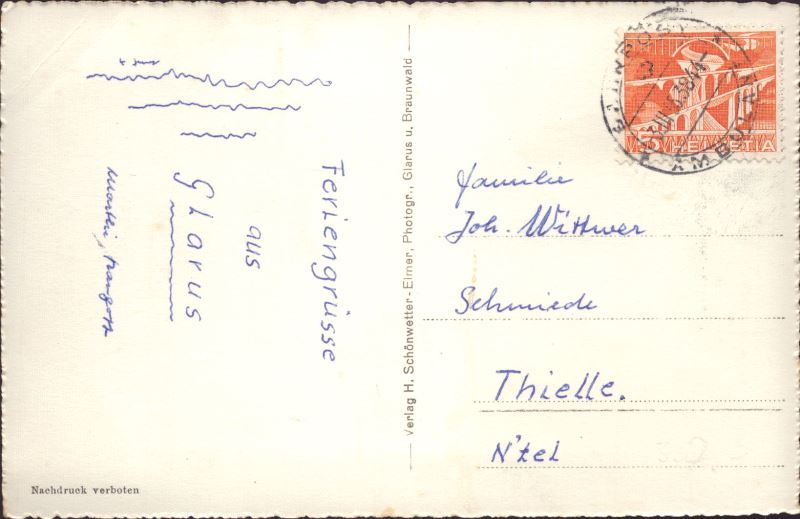 Feriengrüsse
aus
Glarus
Nachdruck verboten
Verlag H. Schönwetter-Elmer, Photogr., Glarus u. Braunwald
5 HELVETIA
AMBULANT
Familie
Joh. Wittwer
Schmiede
Thielle.
N'tel